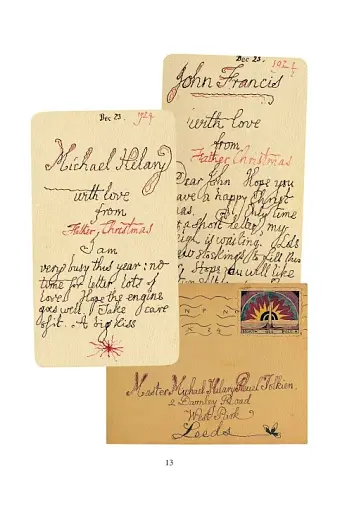 Dec 23. 1924
Michael Hilary
with love
from
Father Christmas
I am
very busy this year: no
time for letter. Lots of
love. Hope the engine
goes well. Take care
of it. A big kiss
Dec 23. 1924
John Francis
with love
from
Father Christmas
Dear John Hope you
have a happy Christ
mas. only time
for a short letter, my
sleigh is waiting. Lots
new stockings to fill this
Hope you will like
Master Michael Hilary Reuel Tolkien
2 Darnley Road
West Park
Leeds
13